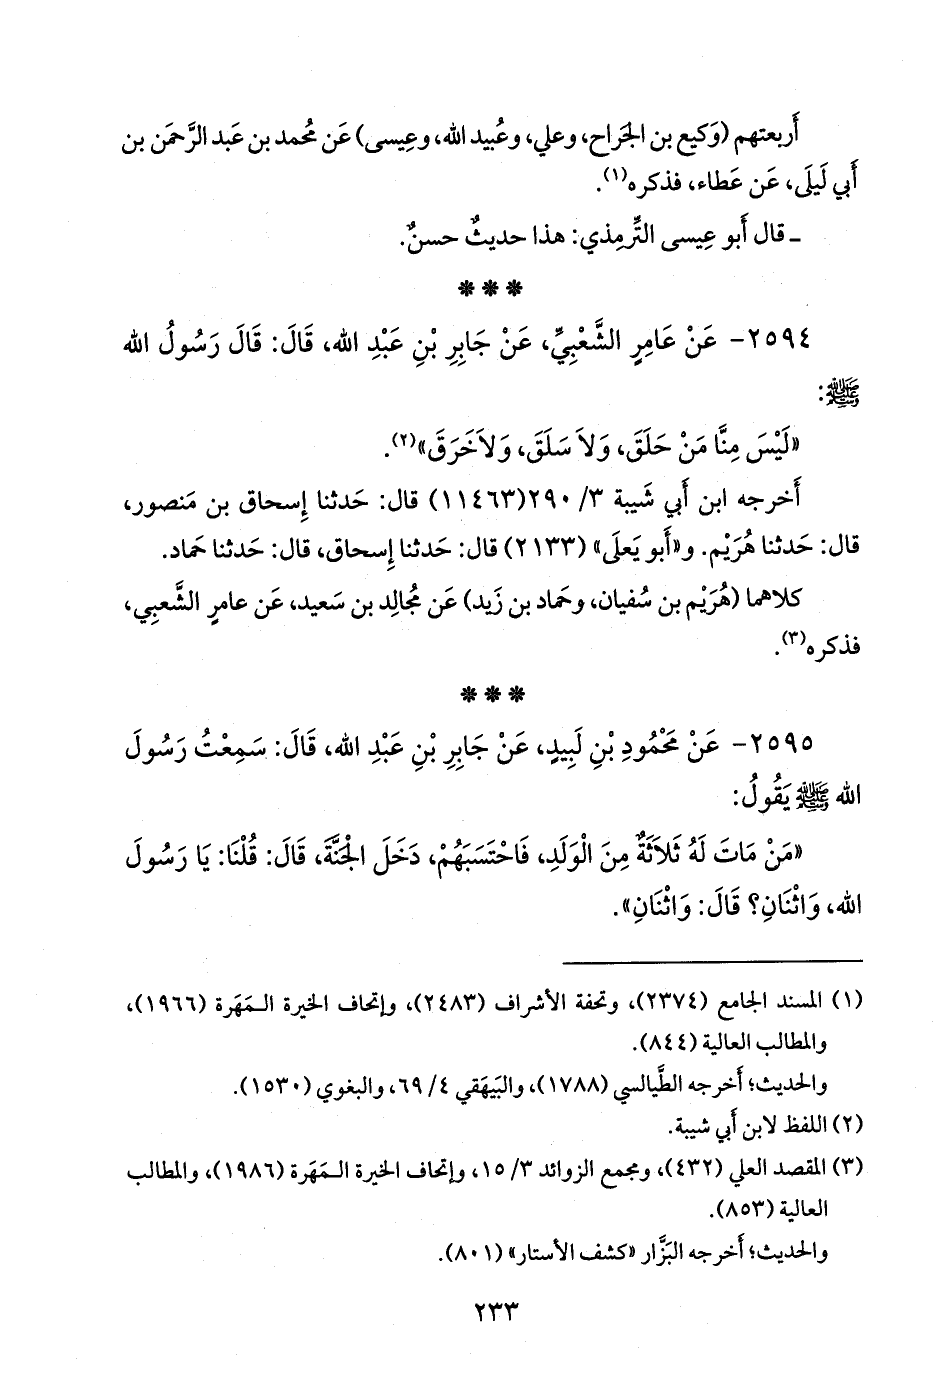 أَربعتهم (وَكيع بن الجَراح، وعلي، وعُبيد الله، وعِيسى) عَن مُحمد بن عَبد الرَّحمَن بن
أَبي لَيلَى، عَن عَطاء، فذكره(١).
ـ قال أَبو عِيسى التِّرمِذي: هذا حديثٌ حسنٌ.
* * *
٢٥٩٤- عَنْ عَامِرٍ الشَّعْبِيِّ، عَنْ جَابِرِ بْنِ عَبْدِ الله، قَالَ: قَالَ رَسُولُ الله
ﷺ:
«لَيْسَ مِنَّا مَنْ حَلَقَ، وَلاَ سَلَقَ، وَلاَ خَرَقَ»(٢).
أَخرجه ابن أَبي شَيبة ٣/ ٢٩٠(١١٤٦٣) قال: حَدثنا إِسحاق بن مَنصور،
قال: حَدثنا هُرَيْم. و«أَبو يَعلَى» (٢١٣٣) قال: حَدثنا إِسحاق، قال: حَدثنا حَماد.
كلاهما (هُرَيْم بن سُفيان، وحَماد بن زَيد) عَن مُجالِد بن سَعيد، عَن عامرٍ الشَّعبِي،
فذكره(٣).
* * *
٢٥٩٥- عَنْ مَحْمُودِ بْنِ لَبِيدٍ، عَنْ جَابِرِ بْنِ عَبْدِ الله، قَالَ: سَمِعْتُ رَسُولَ
الله ﷺ يَقُولُ:
«مَنْ مَاتَ لَهُ ثَلاَثَةٌ مِنَ الْوَلَدِ، فَاحْتَسَبَهُمْ، دَخَلَ الْجَنَّةَ، قَالَ: قُلْنَا: يَا رَسُولَ
الله، وَاثْنَانِ؟ قَالَ: وَاثْنَانِ».
(١) المسند الجامع (٢٣٧٤)، وتحفة الأشراف (٢٤٨٣)، وإتحاف الخيرة المَهَرة (١٩٦٦)،
والمطالب العالية (٨٤٤).
والحديث؛ أَخرجه الطَّيالسي (١٧٨٨)، والبَيهَقي ٤/ ٦٩، والبغوي (١٥٣٠).
(٢) اللفظ لابن أَبي شيبة.
(٣) المقصد العلي (٤٣٢)، ومجمع الزوائد ٣/ ١٥، وإتحاف الخيرة المَهَرة (١٩٨٦)، والمطالب
العالية (٨٥٣).
والحديث؛ أَخرجه البَزَّار «كشف الأستار» (٨٠١).
٢٣٣